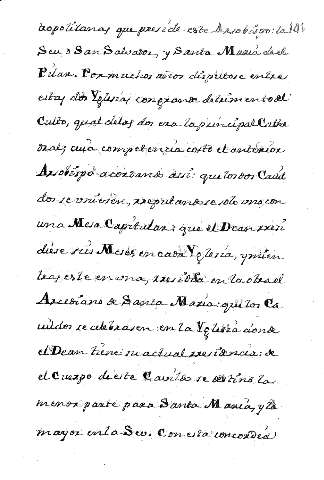 tropolitanas que preside este Arzobispo: la 141
Seu, o San Salvador, y Santa Maria de el
Pilar. Por muchos años disputose entre
estas dos Yglesias con grande detrimento del
Culto, qual de las dos era la principal Cathe
dral: cuia competencia cortó el anterior
Arzobispo acordando assi: que los dos Cavil
dos se uniesen, reputandose solo uno con
una Mesa Capitular: que el Dean resi
diese seis Meses en cada Yglesia, y mien
tras este en una, resida en la otra el
Arcediano de Santa Maria: que los Ca
vildos se celebrasen en la Yglesia donde
el Dean tiene su actual residencia: de
el Cuerpo de este Cavildo se destina la
menor parte para Santa Maria, y la
mayor en la Seu. Con esta concordia